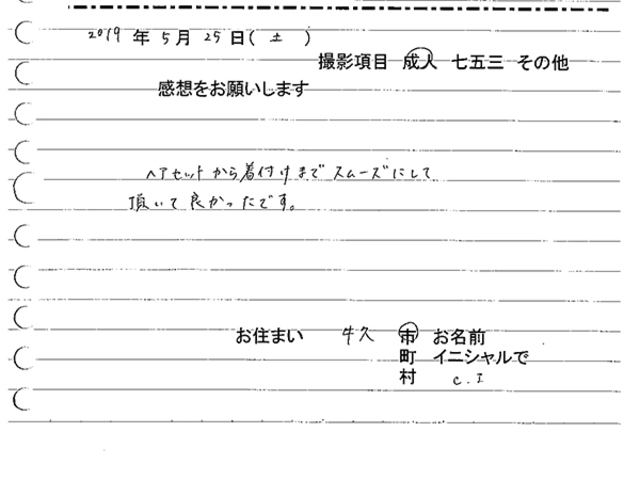 2019年5月25日(土)
撮影項目 成人 七五三 その他
感想をお願いします
ヘアセットから着付けまでスムーズにして
頂いて良かったです。
お住まい 牛久 市 お名前
町 イニシャルで
村 C.I